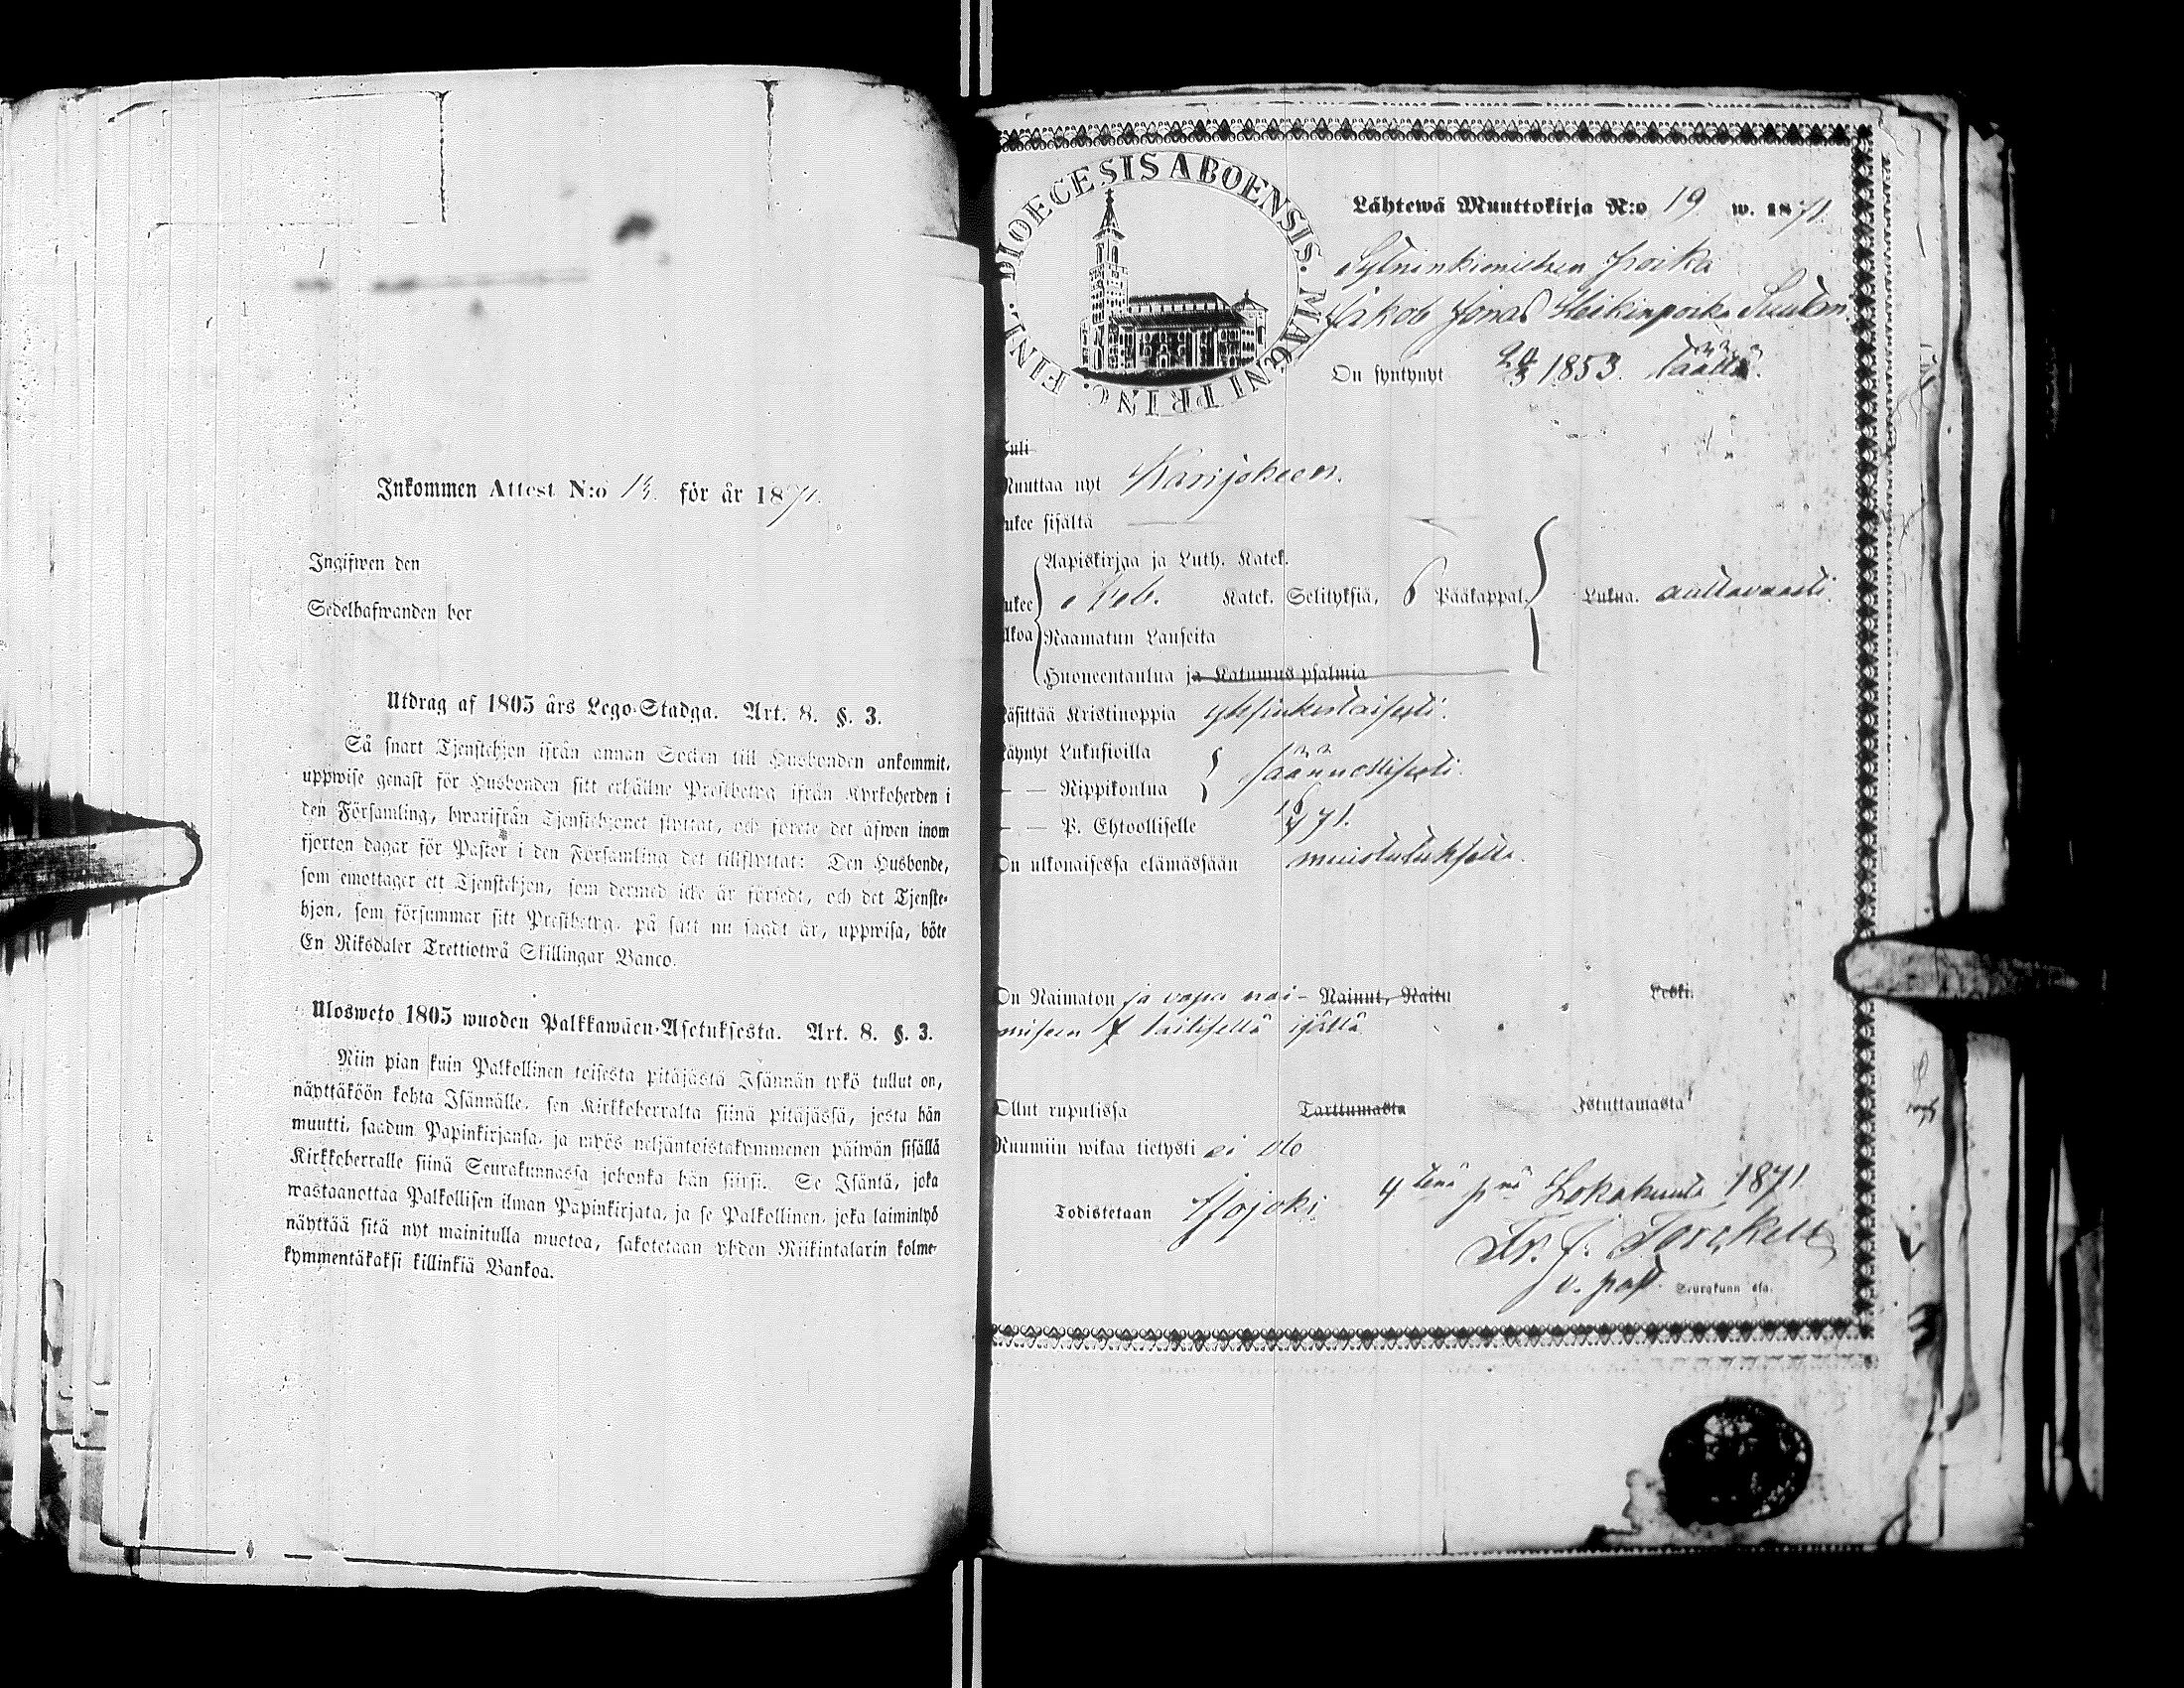 Inkommen Attest N:o 13. för år 1871.
Ingifwen den
Sedelhafwanden bor
Utdrag af 1805 års Lego-Stadga. Art. 8. §. 3.
Så snart Tjenstehjon ifrån annan Socken till Husbonden ankommit,
uppwise genast för Husbonden sitt erhållne Prestbetyg ifrån Kyrkoherden i
den Församling, hwarifrån Tjenstehjonet flyttat, och förete det äfwen inom
fjorton dagar för Pastor i den Församling det tillflyttat: Den Husbonde,
som emottager ett Tjenstehjon, som dermed icke är försedt, och det Tjenste-
hjon, som försummar sitt Prestbetyg, på sätt nu sagdt är, uppwisa, böte
En Riksdaler Trettiotwå Skillingar Banco.
Ulosweto 1805 wuoden Palkkawäen-Asetuksesta. Art. 8. §. 3.
Niin pian kuin Palkollinen toisesta pitäjästä Isännän tykö tullut on,
näyttäköön kohta Isännälle, sen Kirkkoherralta siinä pitäjässä, josta hän
muutti, saadun Papinkirjansa, ja myös neljäntoistakymmenen päiwän sisällä
Kirkkoherralle siinä Seurakunnassa johonka hän siirsi. Se Isäntä, joka
wastaanottaa Palkollisen ilman Papinkirjata, ja se Palkollinen, joka laiminlyö
näyttää sitä nyt mainitulla muotoa, sakotetaan yhden Riikintalarin kolme-
kymmentäkaksi killinkiä Bankoa.
DIOECESIS ABOENSIS. MAGNI PRINC. FINL.
Lähtewä Muuttokirja N:o 19 w. 1871.
poika
Jakob Jonas Heikinpoika
On syntynyt 1853. täällä.
Tuli
Muuttaa nyt Karijokeen.
Lukee sisältä
Aapiskirjaa ja Luth. Katek.
Lukee Katek. Selityksiä, 6 Pääkappal. Lukua. auttavasti.
Ulkoa Raamatun Lauseita
Huoneentaulua ja Katumus psalmia
Käsittää Kristinoppia yksinkertaisesti.
Käynyt Lukusioilla
— — Rippikoulua säännöllisesti.
— — P. Ehtoolliselle 71.
On ulkonaisessa elämässään muistutuksetta.
On Naimaton ja vapa nai- Nainut, Naitu Leski.
miseen laillisella ijällä
Ollut rupulissa Tarttumasta Istuttamasta
Ruumiin wikaa tietysti ei ole
Todistetaan Isojoki 4 tenä p nä Lokakuuta 1871
Fr. J. Forskell
v. past. Seurakunn ssa.